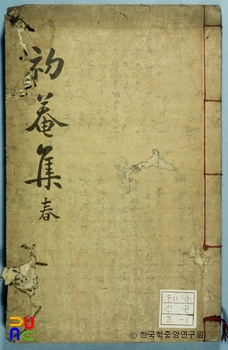 初菴集 春
© 한국학중앙연구원